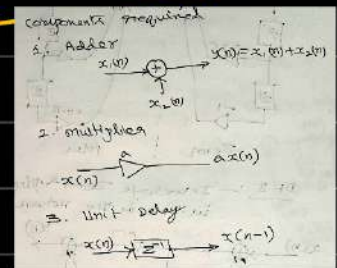 components required
1. Adder
x₁(n) + y(n) = x₁(n) + x₂(n)
x₂(n)
2. multiplier
a
x(n) a x(n)
3. Unit Delay
x(n) z⁻¹ x(n-1)